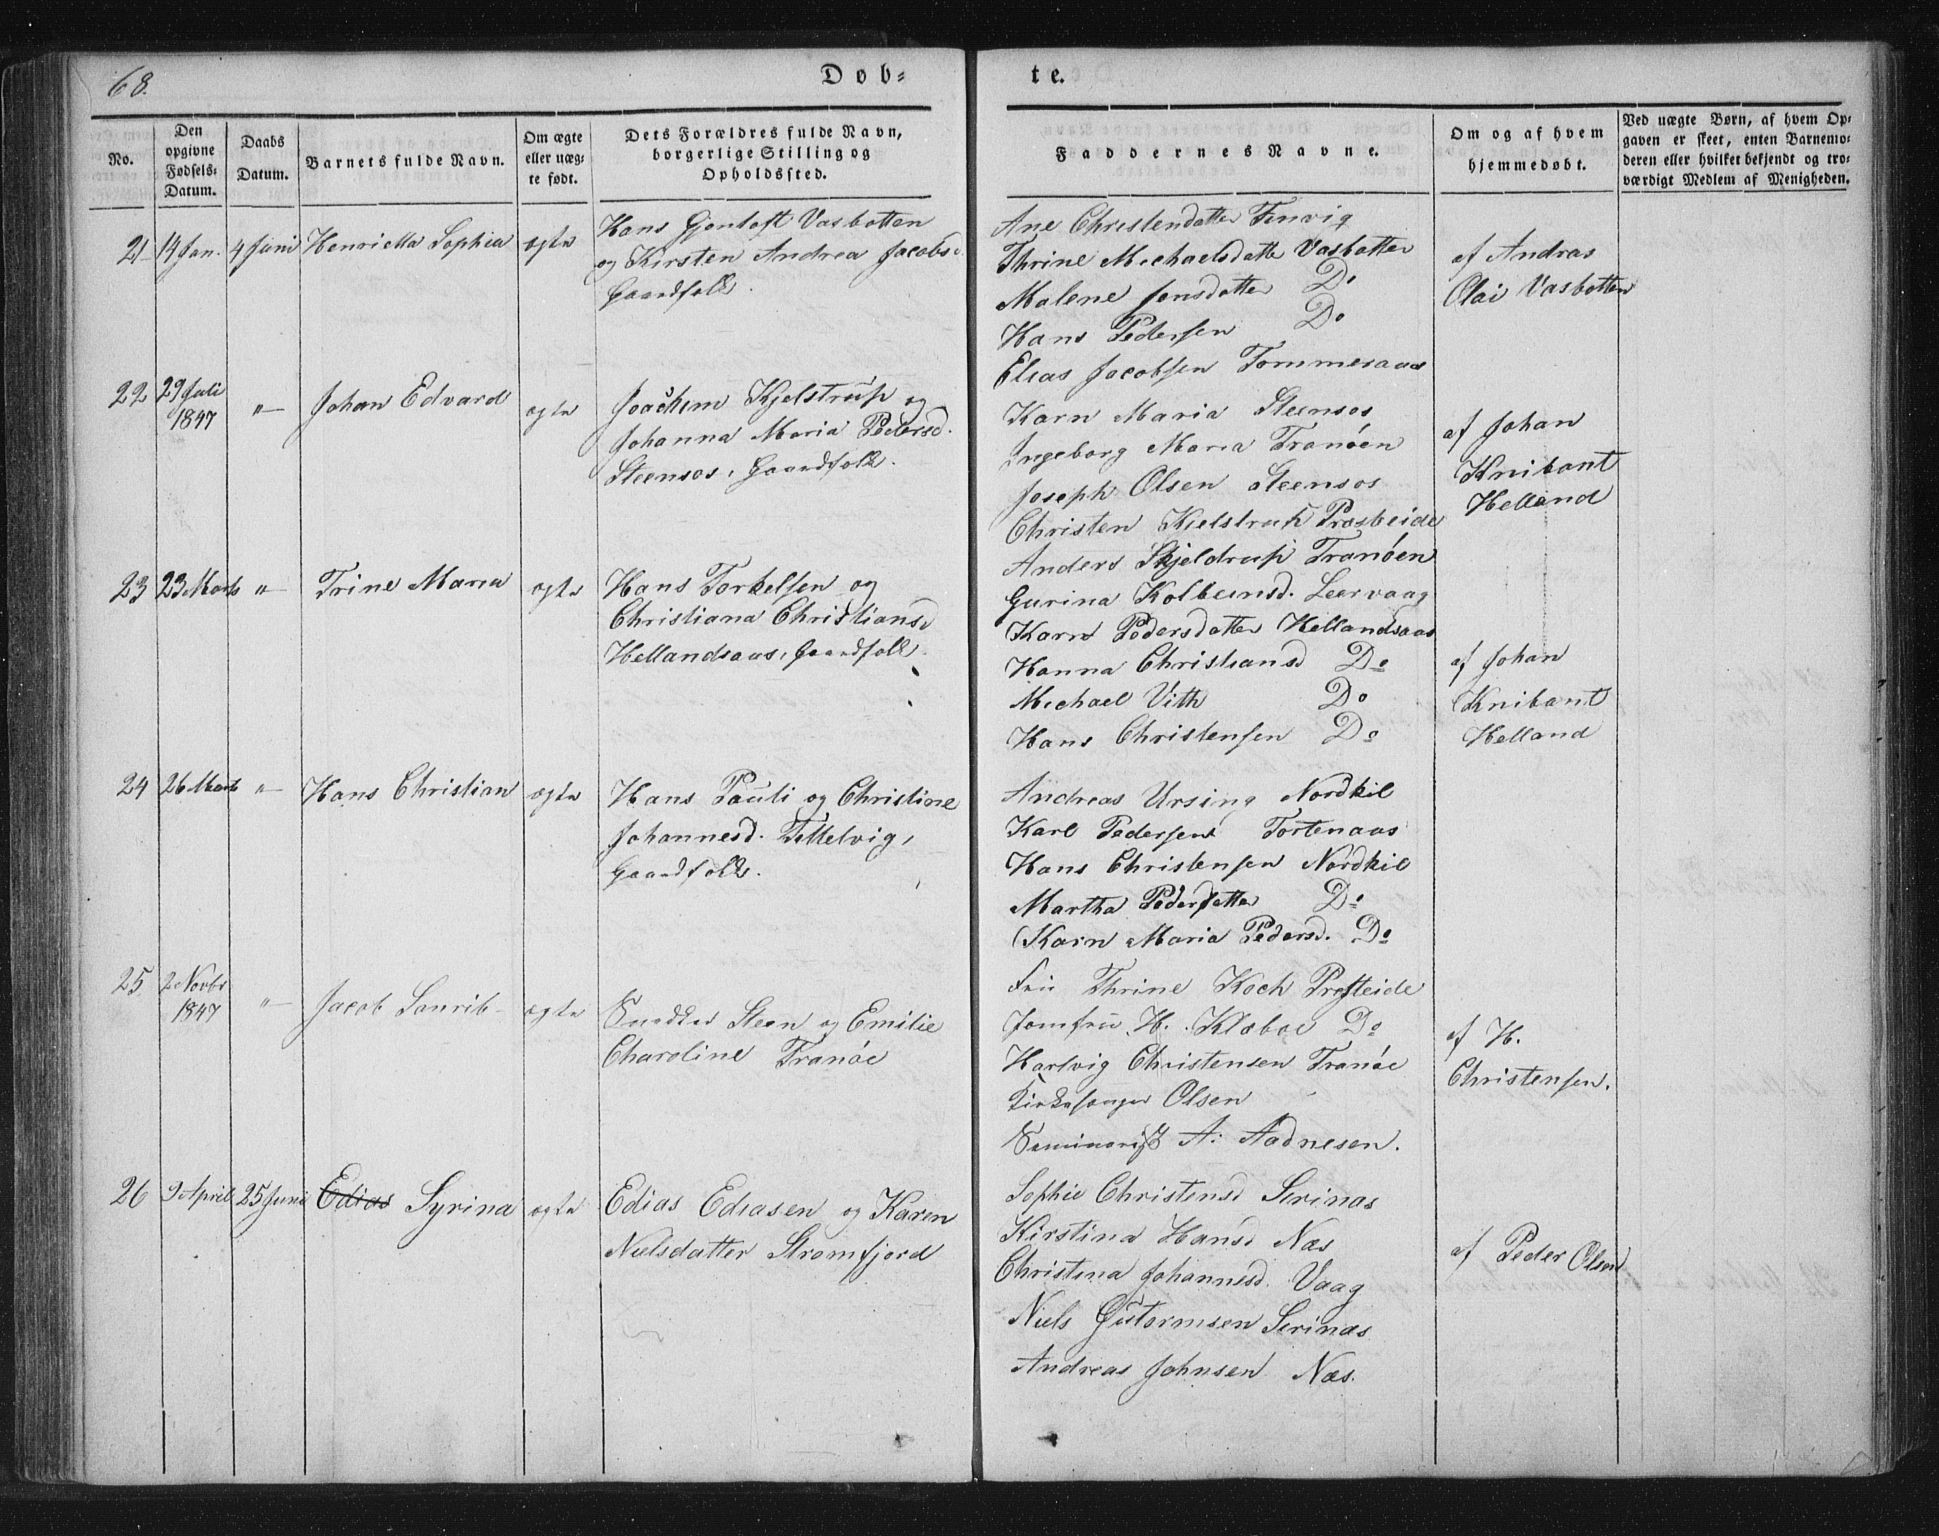 68.
Døb-
te.
No.
Den opgivne Fødsels-Datum.
Daabs Datum.
Barnets fulde Navn.
Om ægte eller uæg-te født.
Dets Forældres fulde Navn, borgerlige Stilling og Opholdssted.
Faddernes Navne.
Om og af hvem hjemmedøbt.
Ved uægte Børn, af hvem Op-gaven er skeet, enten Barnemo-deren eller hvilket bekjendt og tro-værdigt Medlem af Menigheden.
21 14 Jan. 4 Juni Henrietta Sophia ægte
Hans Gentoft Vasbotten
og Kirsten Andrea Jacobsd.
Gaardfolk.
Ane Christendatter Finvig
Thrine Michaelsdatter Vasbotten
Malene Jonsdatter Do
Hans Pedersen Do
Elias Jacobsen Tommeraas
af Andras
Olai Vasbotten
22 29 Juli 1847 " Johan Edvard ægte
Joachim Kjelstrup og
Johanna Maria Pedersd.
Steensos, Gaardfolk.
Karn Maria Steensos
Ingeborg Maria Tranøen
Joseph Olsen Steensos
Christen Kjelstrup Præsteide
Anders Skjeldrup Tranøen
af Johan
Knibant
Helland
23 23 Marts " Trine Maria ægte
Hans Torkelsen og
Christiana Christiansd
Hellandsaas, Gaardfolk.
Gurina Kolbeinsd. Leervaag
Karn Pedersdatter Hellandsaas
Hanna Christiansd Do
Michael Vith Do
Hans Christensen Do
af Johan
Knibant
Helland
24 26 Marts " Hans Christian ægte
Hans Pauli og Christine
Johannesd. Tettelvig,
Gaardfolk.
Andreas Ursing Nordkil
Karl Pedersen Tortenaas
Hans Christensen Nordkil
Martha Pedersdatter Do
Karn Maria Pedersd. Do
25 2 Novbr 1847 " Jacob Laurib ægte
Snedker Steen og Emilie
Charoline Tranøe
Fru Thrine Koch Presteide
Jomfru H. Klæboe Do
Hartvig Christensen Tranøe
Kirkesanger Olsen
Seminarist A: Aadnesen.
af H.
Christensen.
26 9 April 25 Juni Edias Syrina ægte
Edias Ediasen og Karen
Nielsdatter Strømfjord
Sophie Christensd Serinæs
Kirstina Hansd Næs
Christina Johannesd. Vaag
Niels Guttormsen Serinæs
Andreas Johnsen Næs.
af Peder Olsen